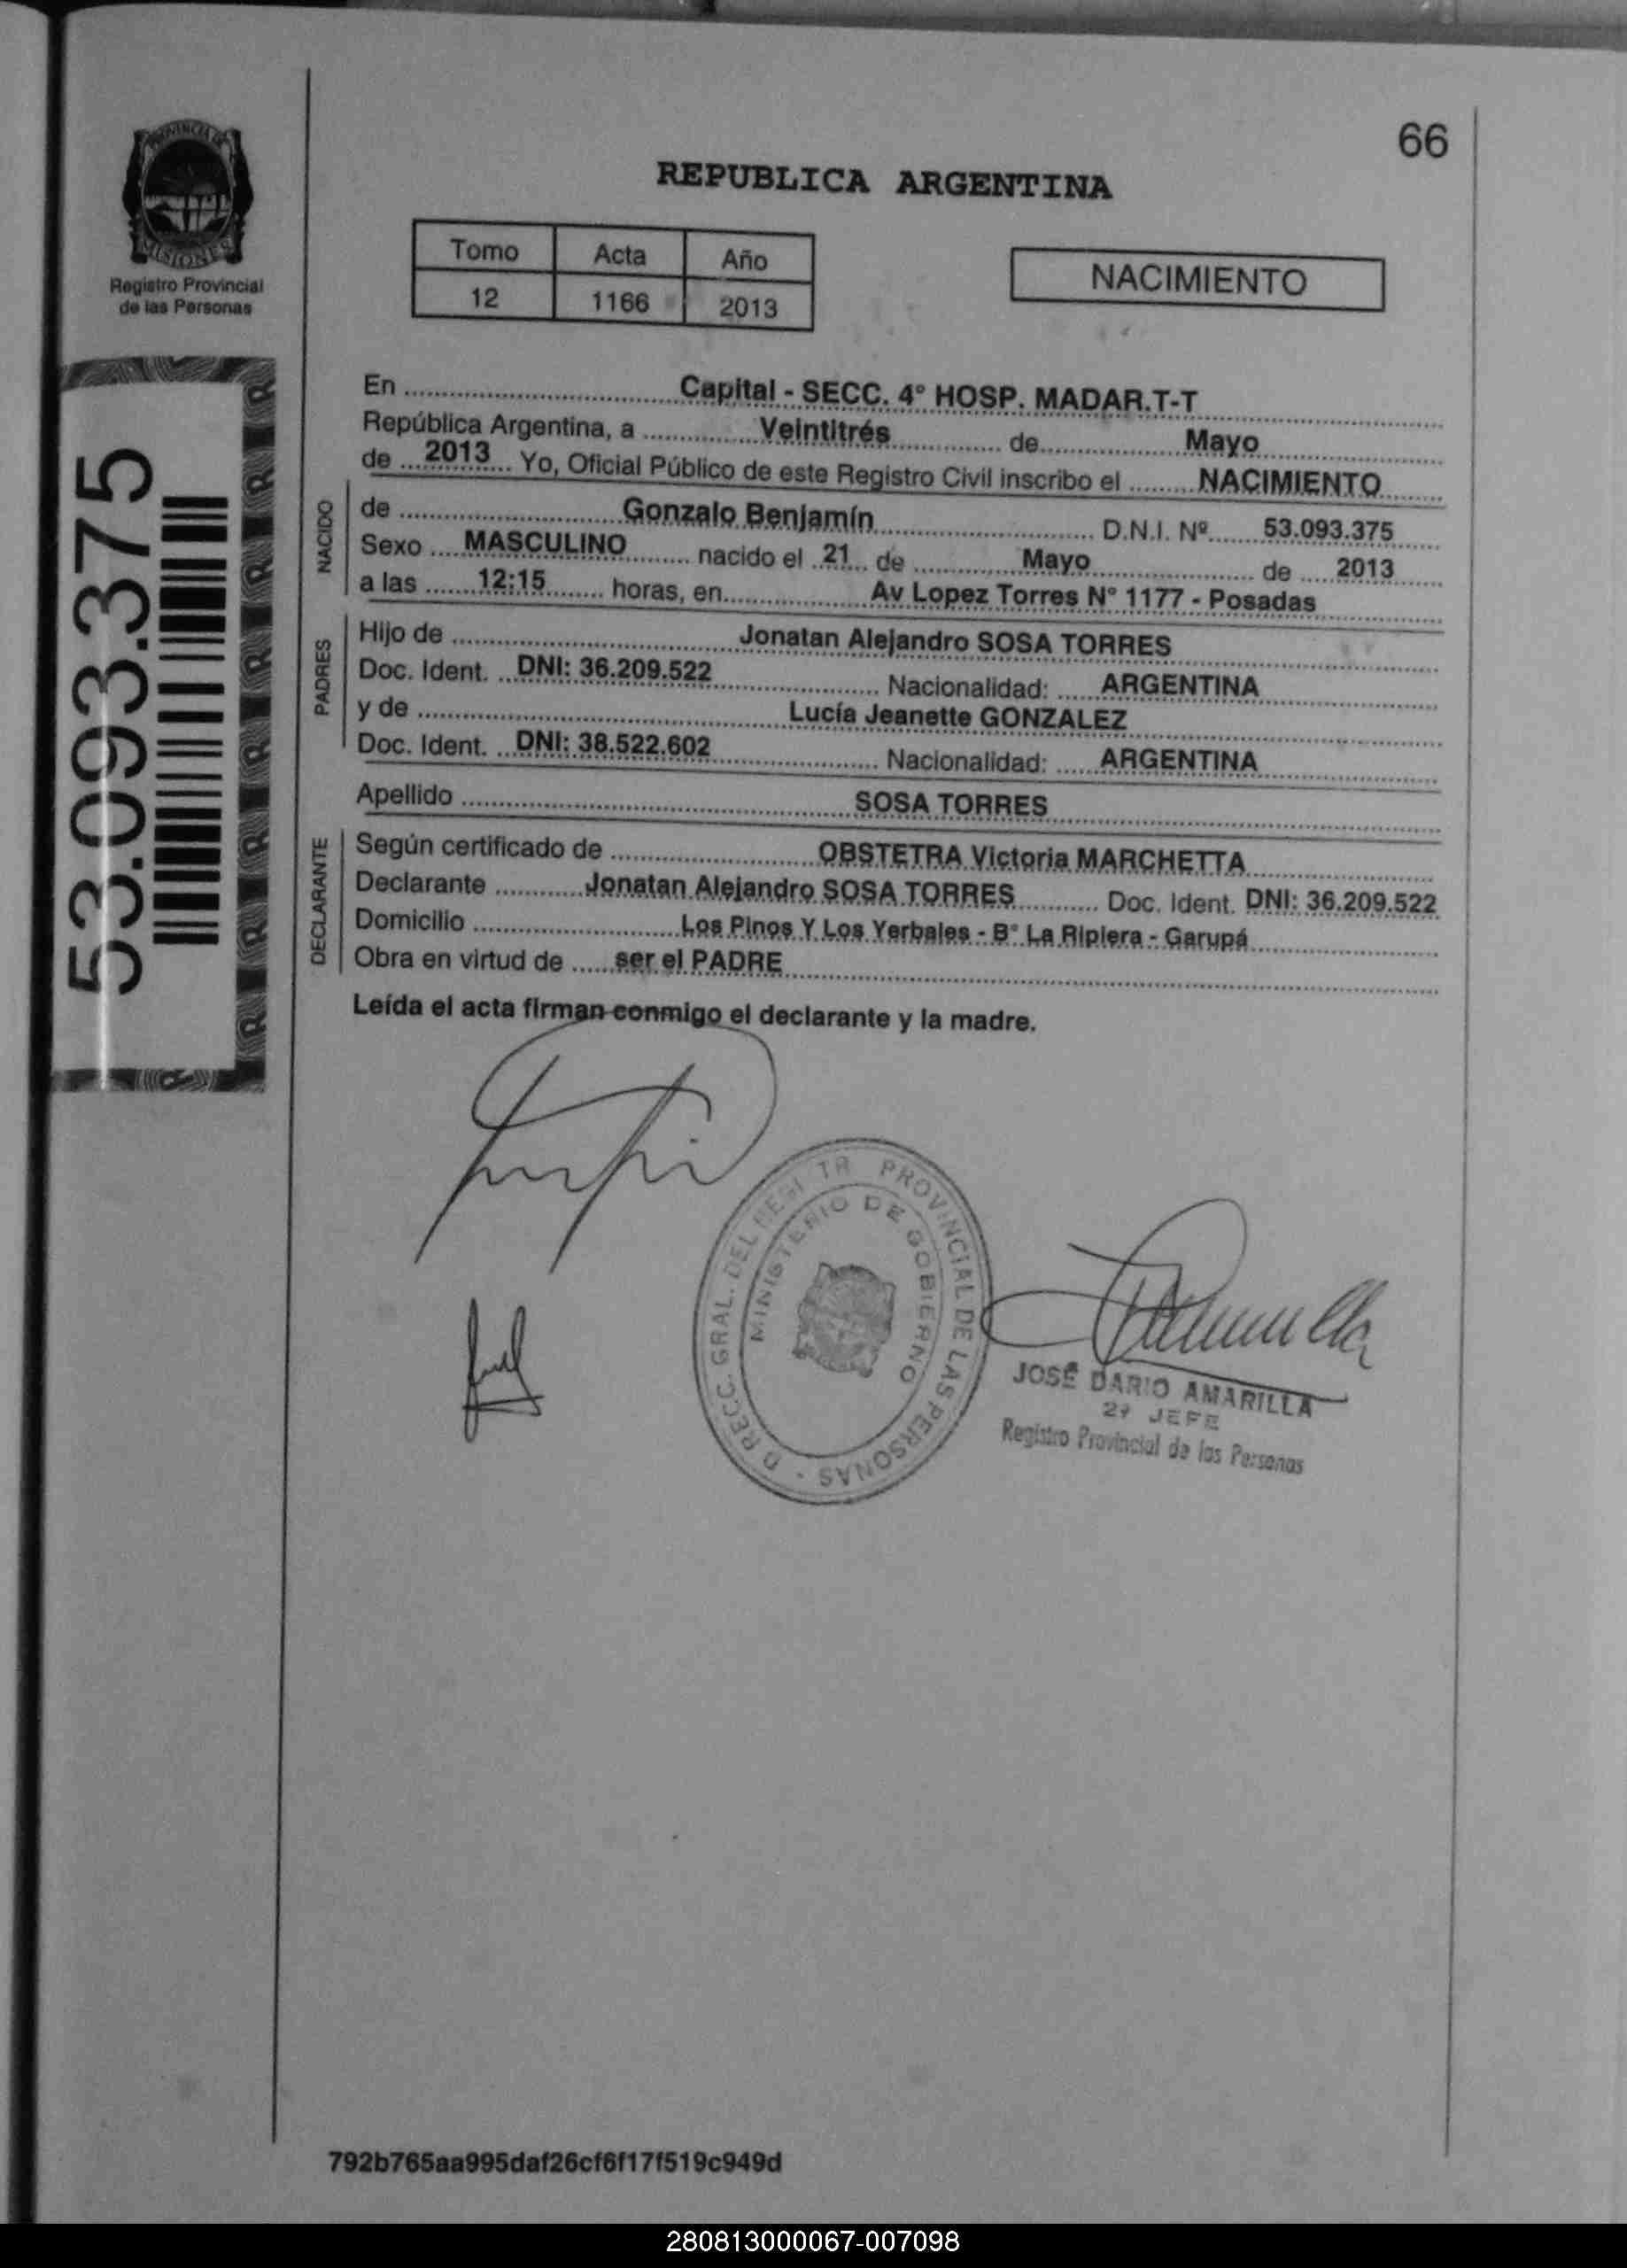 66
PROVINCIA DE
MISIONES
Registro Provincial
de las Personas
REPUBLICA ARGENTINA
Tomo Acta Año
12 1166 2013
NACIMIENTO
53.093.375
En Capital - SECC. 4° HOSP. MADAR.T-T
República Argentina, a Veintitrés de Mayo
de 2013 Yo, Oficial Público de este Registro Civil inscribo el NACIMIENTO
NACIDO
de Gonzalo Benjamín D.N.I. Nº 53.093.375
Sexo MASCULINO nacido el 21 de Mayo de 2013
a las 12:15 horas, en Av Lopez Torres N° 1177 - Posadas
PADRES
Hijo de Jonatan Alejandro SOSA TORRES
Doc. Ident. DNI: 36.209.522 Nacionalidad: ARGENTINA
y de Lucía Jeanette GONZALEZ
Doc. Ident. DNI: 38.522.602 Nacionalidad: ARGENTINA
Apellido SOSA TORRES
DECLARANTE
Según certificado de OBSTETRA Victoria MARCHETTA
Declarante Jonatan Alejandro SOSA TORRES Doc. Ident. DNI: 36.209.522
Domicilio Los Pinos Y Los Yerbales - B° La Ripiera - Garupá
Obra en virtud de ser el PADRE
Leída el acta firman conmigo el declarante y la madre.
GRAL. DEL PROVINCIAL DE LAS PERSONAS
MINISTERIO DE GOBIERNO
JOSÉ DARIO AMARILLA
2º JEFE
Registro Provincial de las Personas
792b765aa995daf26cf6f17f519c949d
280813000067-007098